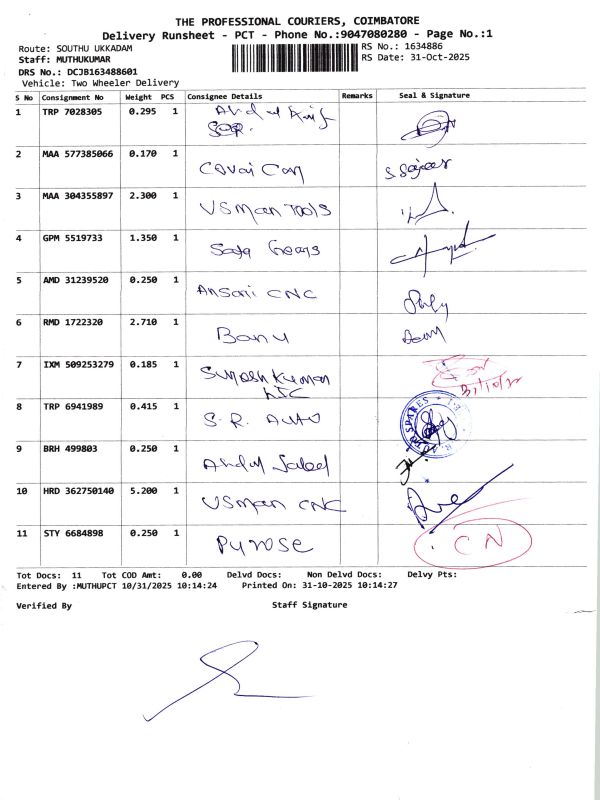 THE PROFESSIONAL COURIERS, COIMBATORE
Delivery Runsheet - PCT - Phone No.:9047080280 - Page No.:1
Route: SOUTHU UKKADAM
RS No.: 1634886
Staff: MUTHUKUMAR
RS Date: 31-Oct-2025
DRS No.: DCJB163488601
Vehicle: Two Wheeler Delivery
S No Consignment No Weight PCS Consignee Details Remarks Seal & Signature
1 TRP 7028305 0.295 1
2 MAA 577385066 0.170 1 Covai Can S Sajeer
3 MAA 304355897 2.300 1 USman Tools
4 GPM 5519733 1.350 1
5 AMD 31239520 0.250 1 Ansari CNC
6 RMD 1722320 2.710 1 Banu
7 IXM 509253279 0.185 1 Suresh Kumar
LIC
8 TRP 6941989 0.415 1 S.R. AUTO SPARES
9 BRH 499803 0.250 1 Abdul Jaleel
10 HRD 362750140 5.200 1 USman CNC
11 STY 6684898 0.250 1 Purose CN
Tot Docs: 11 Tot COD Amt: 0.00 Delvd Docs: Non Delvd Docs: Delvy Pts:
Entered By :MUTHUPCT 10/31/2025 10:14:24 Printed On: 31-10-2025 10:14:27
Verified By Staff Signature